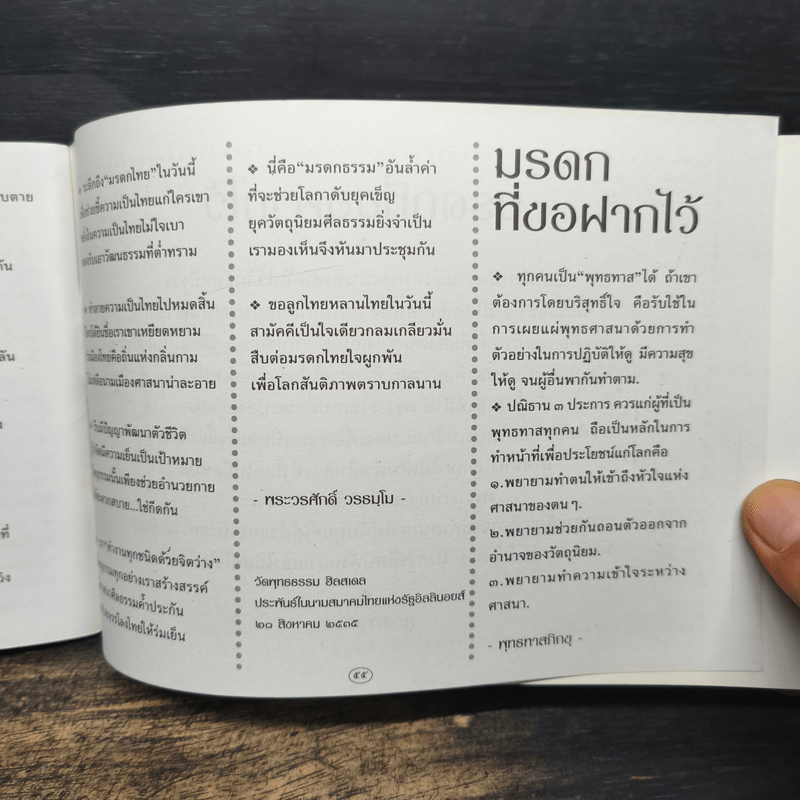 บตาย
กัน
ลัน
ที่
ระลึกถึง“มรดกไทย”ในวันนี้
ช่วยชี้ความเป็นไทยแก่ใครเขา
ในความเป็นไทยไม่ใจเบา
เอาวัฒนธรรมที่ต่ำทราม
ทำลายความเป็นไทยไปหมดสิ้น
ได้ยินชื่อเราเขาเหยียดหยาม
เมืองไทยคือถิ่นแห่งกลิ่นกาม
นามเมืองศาสนาน่าละอาย
มีปัญญาพัฒนาตัวชีวิต
มีความเย็นเป็นเป้าหมาย
ธรรมนั้นเพียงช่วยอำนวยกาย
สะดวกสบาย...ใช่กีดกัน
ทำงานทุกชนิดด้วยจิตว่าง”
ทุกอย่างเราสร้างสรรค์
ศีลธรรมค้ำประกัน
โลงไทยให้ร่มเย็น
❖ นี่คือ“มรดกธรรม”อันล้ำค่า
ที่จะช่วยโลกาดับยุคเข็ญ
ยุควัตถุนิยมศีลธรรมยิ่งจำเป็น
เรามองเห็นจึงหันมาประชุมกัน
❖ ขอลูกไทยหลานไทยในวันนี้
สามัคคีเป็นใจเดียวกลมเกลียวมั่น
สืบต่อมรดกไทยใจผูกพัน
เพื่อโลกสันติภาพตราบกาลนาน
- พระวรศักดิ์ วรธมฺโม -
วัดพุทธธรรม ฮิลสเดล
ประพันธ์ในนามสมาคมไทยแห่งรัฐอิลลินอยส์
๒๑ สิงหาคม ๒๕๓๕
มรดก
ที่ขอฝากไว้
❖ ทุกคนเป็น“พุทธทาส”ได้ ถ้าเขา
ต้องการโดยบริสุทธิ์ใจ คือรับใช้ใน
การเผยแผ่พุทธศาสนาด้วยการทำ
ตัวอย่างในการปฏิบัติให้ดู มีความสุข
ให้ดู จนผู้อื่นพากันทำตาม.
❖ ปณิธาน ๓ ประการ ควรแก่ผู้ที่เป็น
พุทธทาสทุกคน ถือเป็นหลักในการ
ทำหน้าที่เพื่อประโยชน์แก่โลกคือ
๑.พยายามทำตนให้เข้าถึงหัวใจแห่ง
ศาสนาของตน ๆ.
๒.พยายามช่วยกันถอนตัวออกจาก
อำนาจของวัตถุนิยม.
๓.พยายามทำความเข้าใจระหว่าง
ศาสนา.
- พุทธทาสภิกขุ -
๕๕